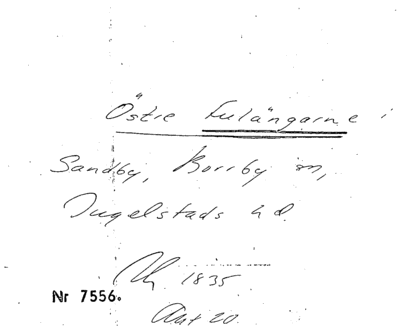 Östre Fulängarne i
Sandby, Borrby sn,
Ingelstads hd.
1835
Nr 7556.
Akt 20